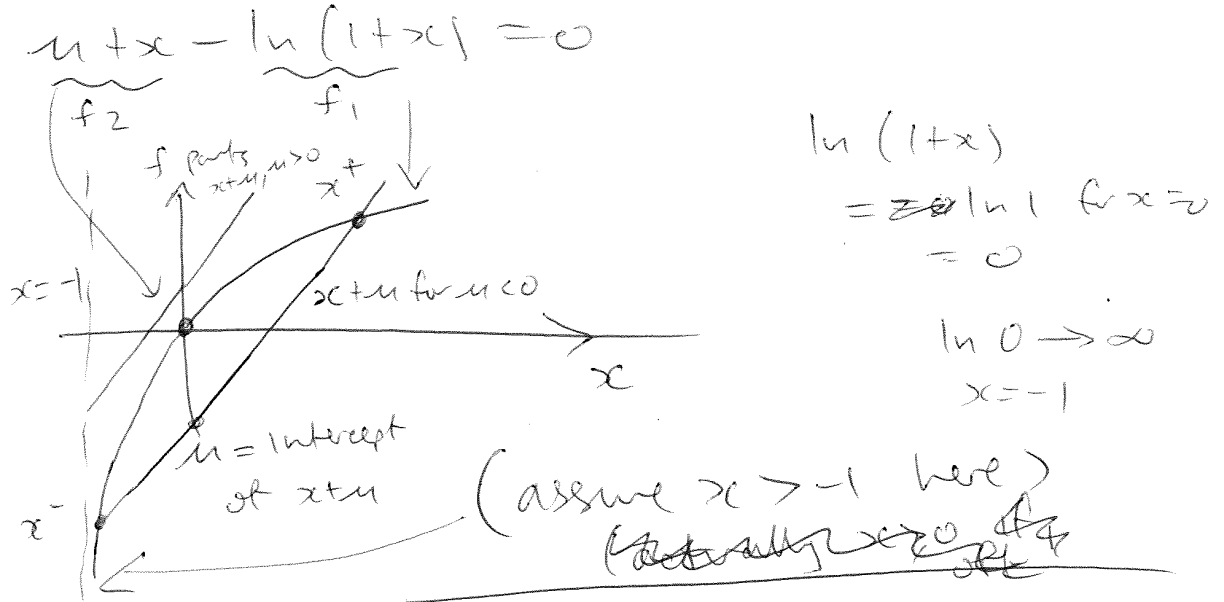 μ + x - ln (1+x) = 0
f2
f1
f parts
x+μ, μ>0
x+
x = -1
x+μ for μ<0
x
μ = intercept
of x+μ
x-
ln (1+x)
= ln 1 for x=0
= 0
ln 0 → ∞
x=-1
(assume x > -1 here)